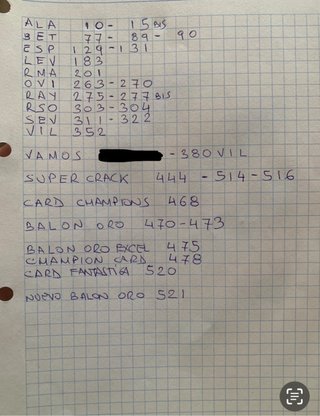 ALA 10 - 15 BIS
BET 77 - 89 - 90
ESP 129 - 131
LEV 183
RMA 201
OVI 263 - 270
RAY 275 - 277 BIS
RSO 303 - 304
SEV 311 - 322
VIL 352
VAMOS - 380 VIL
SUPER CRACK 444 - 514 - 516
CARD CHAMPIONS 468
BALON ORO 470 - 473
BALON ORO EXCEL 475
CHAMPION CARD 478
CARD FANTASTIGA 520
NUEVO BALON ORO 521